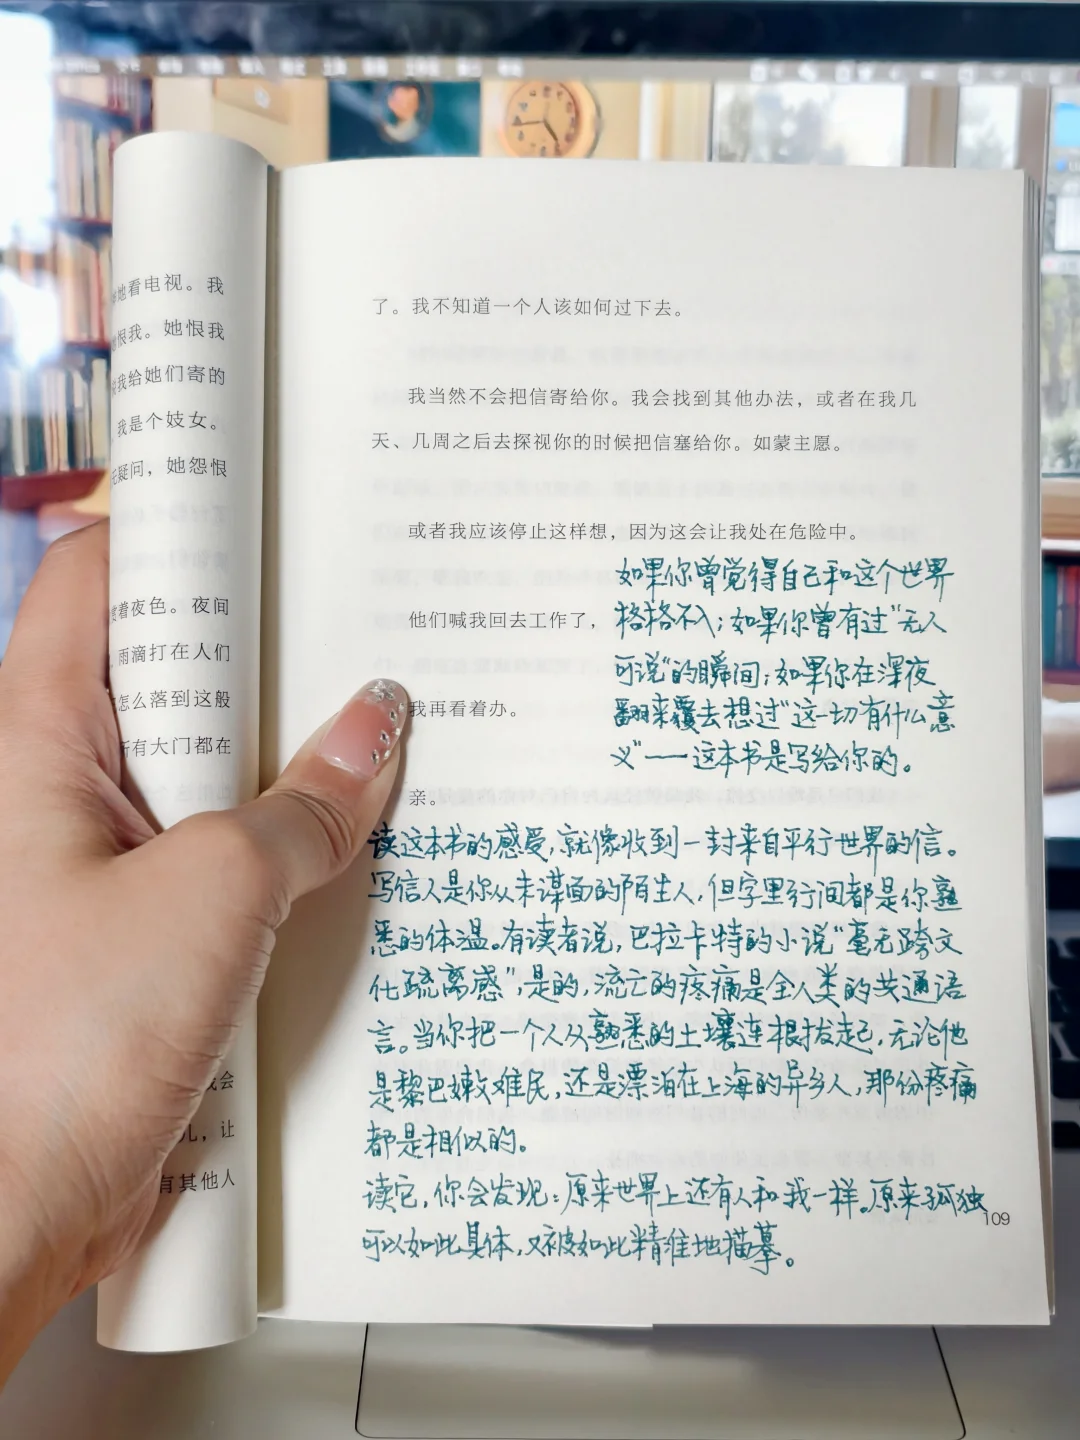 她看电视。我
恨我。她恨我
我给她们寄的
我是个妓女。
疑问，她怨恨
着夜色。夜间
雨滴打在人们
怎么落到这般
所有大门都在
我会
儿，让
有其他人
了。我不知道一个人该如何过下去。
我当然不会把信寄给你。我会找到其他办法，或者在我几
天、几周之后去探视你的时候把信塞给你。如蒙主愿。
或者我应该停止这样想，因为这会让我处在危险中。
他们喊我回去工作了，
我再看着办。
亲。
如果你曾觉得自己和这个世界
格格不入；如果你曾有过“无人
可说”的瞬间；如果你在深夜
翻来覆去想过“这一切有什么意
义”——这本书是写给你的。
读这本书的感受，就像收到一封来自平行世界的信。
写信人是你从未谋面的陌生人，但字里行间都是你熟
悉的体温。有读者说，巴拉卡特的小说“毫无跨文
化疏离感”，是的，流亡的疼痛是全人类的共通语
言。当你把一个人从熟悉的土壤连根拔起，无论他
是黎巴嫩难民，还是漂泊在上海的异乡人，那份疼痛
都是相似的。
读它，你会发现：原来世界上还有人和我一样。原来孤独
可以如此具体，又被如此精准地描摹。
109